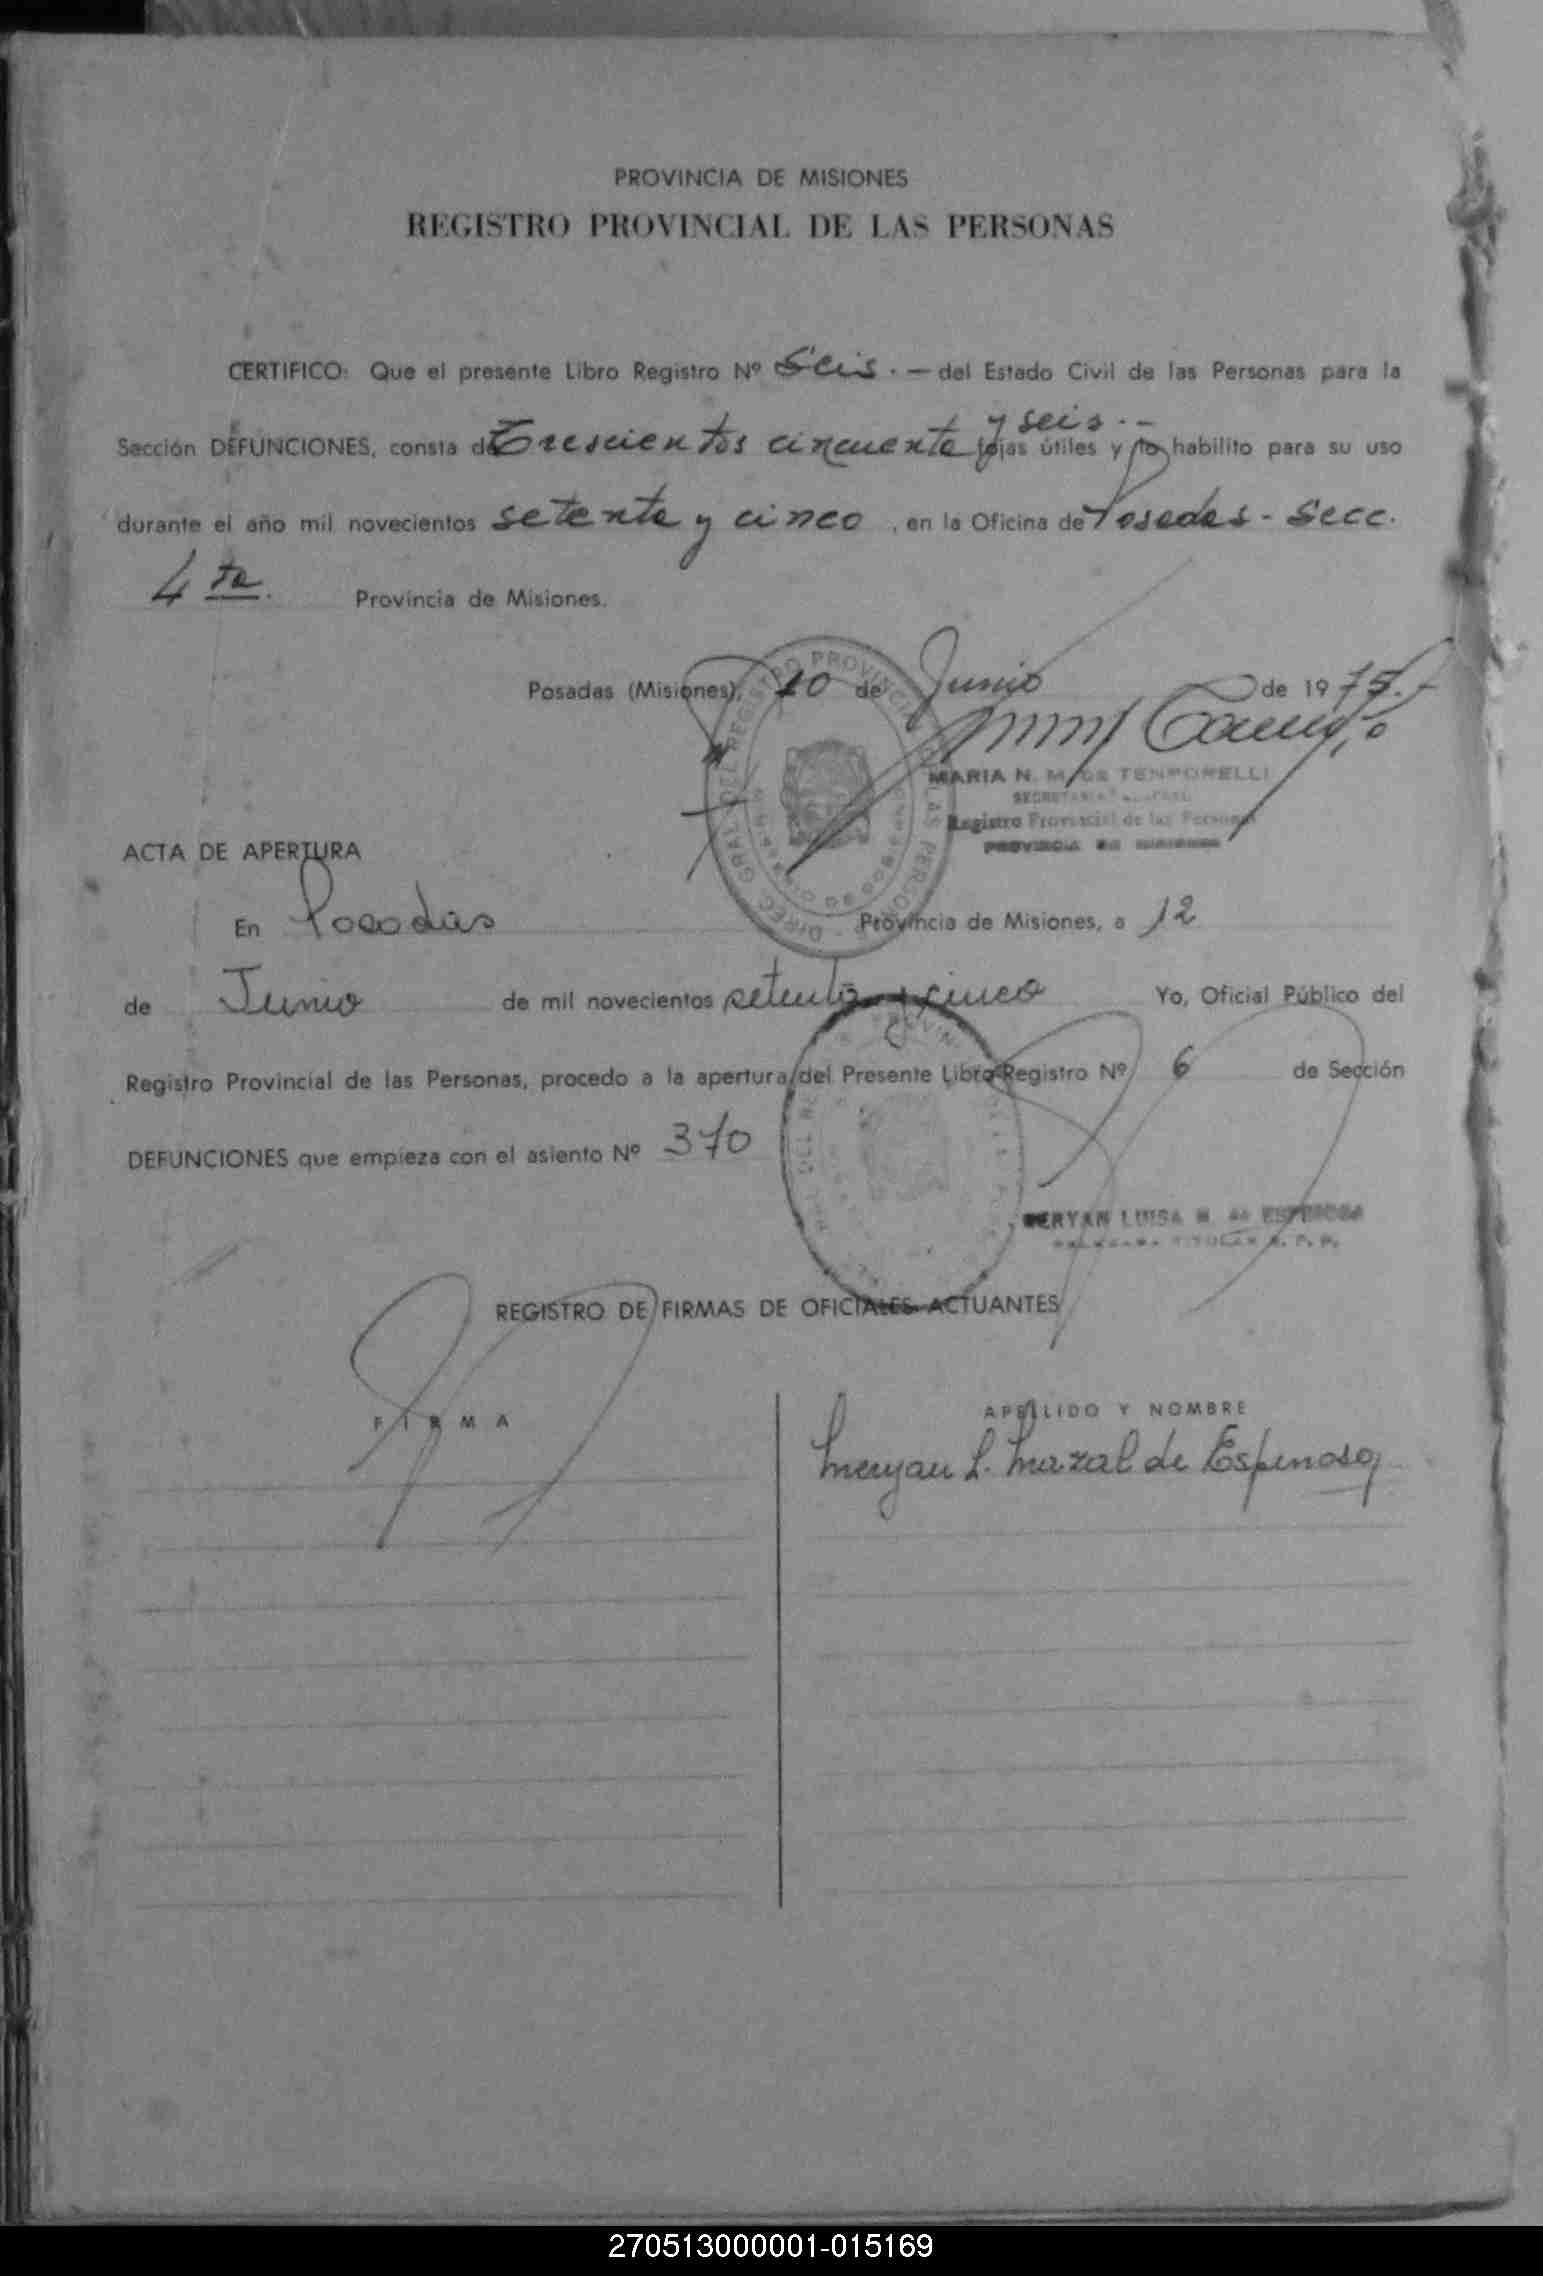 PROVINCIA DE MISIONES
REGISTRO PROVINCIAL DE LAS PERSONAS
CERTIFICO: Que el presente Libro Registro Nº Seis.- del Estado Civil de las Personas para la
y seis.-
Sección DEFUNCIONES, consta de Trescientos cincuenta fojas útiles y lo habilito para su uso
durante el año mil novecientos setenta y cinco, en la Oficina de Posadas - Secc.
4ta. Provincia de Misiones.
Posadas (Misiones), 10 de Junio de 1975.-
MARIA N. M. DE TEMPORELLI
Registro Provincial de las Personas
PROVINCIA DE MISIONES
ACTA DE APERTURA
En Posadas Provincia de Misiones, a 12
de Junio de mil novecientos setenta y cinco Yo, Oficial Público del
Registro Provincial de las Personas, procedo a la apertura del Presente Libro Registro Nº 6 de Sección
DEFUNCIONES que empieza con el asiento Nº 370
MERYAN LUISA M. de ESPINOSA
REGISTRO DE FIRMAS DE OFICIALES ACTUANTES
FIRMA
APELLIDO Y NOMBRE
Meryan L. Mazal de Espinosa
270513000001-015169